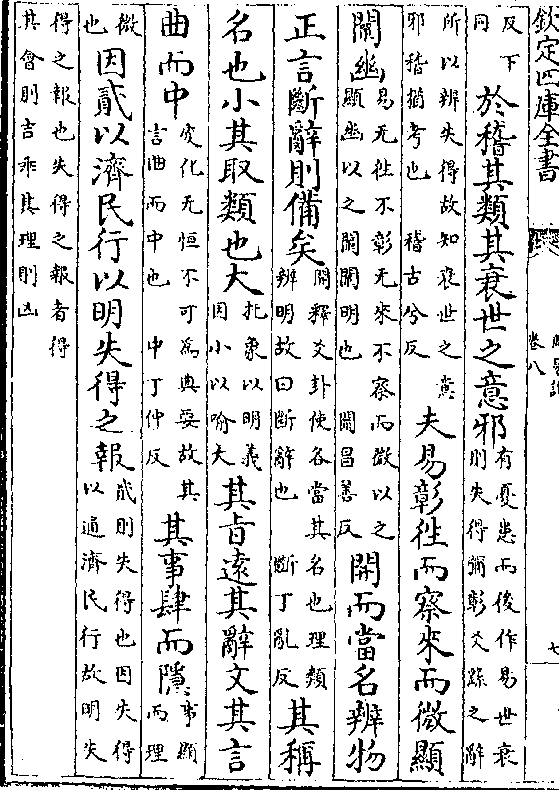 欽定四庫全書
卷八
七
反下同於稽其類其衰世之意邪有憂患而後作易世衰則失得彌彰爻繇之辭
所以辨失得故知衰世之意邪稽猶考也 稽古兮反夫易彰往而察來而微顯
闡幽易无往不彰无來不察而微以之顯幽以之闡闡明也 闡昌善反開而當名辨物
正言斷辭則備矣開釋爻卦使各當其名也理類辨明故曰斷辭也 斷丁亂反其稱
名也小其取類也大托象以明義因小以喻大其㫖遠其辭文其言
曲而中變化无恒不可為典要故其言曲而中也 中丁仲反其事肆而隱事顯而理
微也因貳以濟民行以明失得之報貳則失得也因失得以通濟民行故明失
得之報也失得之報者得其會則吉乖其理則凶